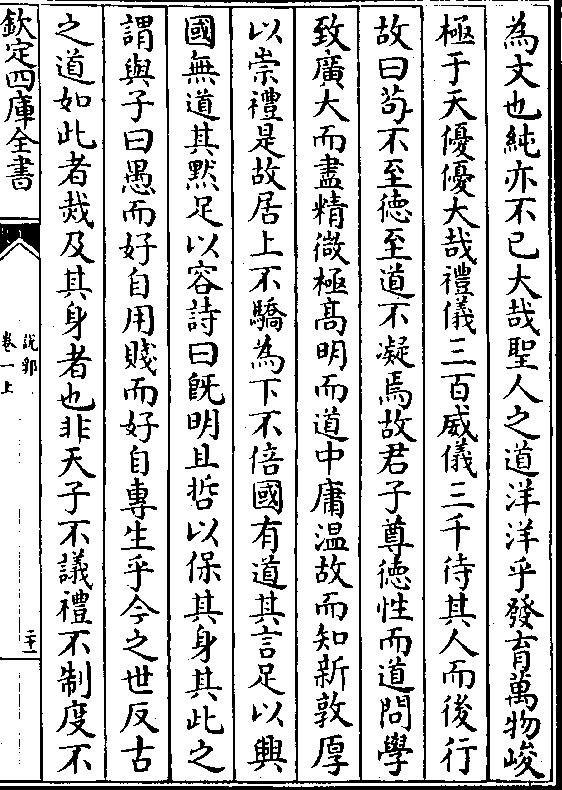 為文也純亦不已大哉聖人之道洋洋乎發育萬物峻
極于天優優大哉禮儀三百威儀三千待其人而後行
故曰苟不至德至道不凝焉故君子尊德性而道問學
致廣大而盡精微極髙明而道中庸温故而知新敦厚
以崇禮是故居上不驕為下不倍國有道其言足以興
國無道其黙足以容詩曰旣明且哲以保其身其此之
謂與子曰愚而好自用賤而好自專生乎今之世反古
之道如此者烖及其身者也非天子不議禮不制度不
欽定四庫全書
說郛
卷一上
二十一